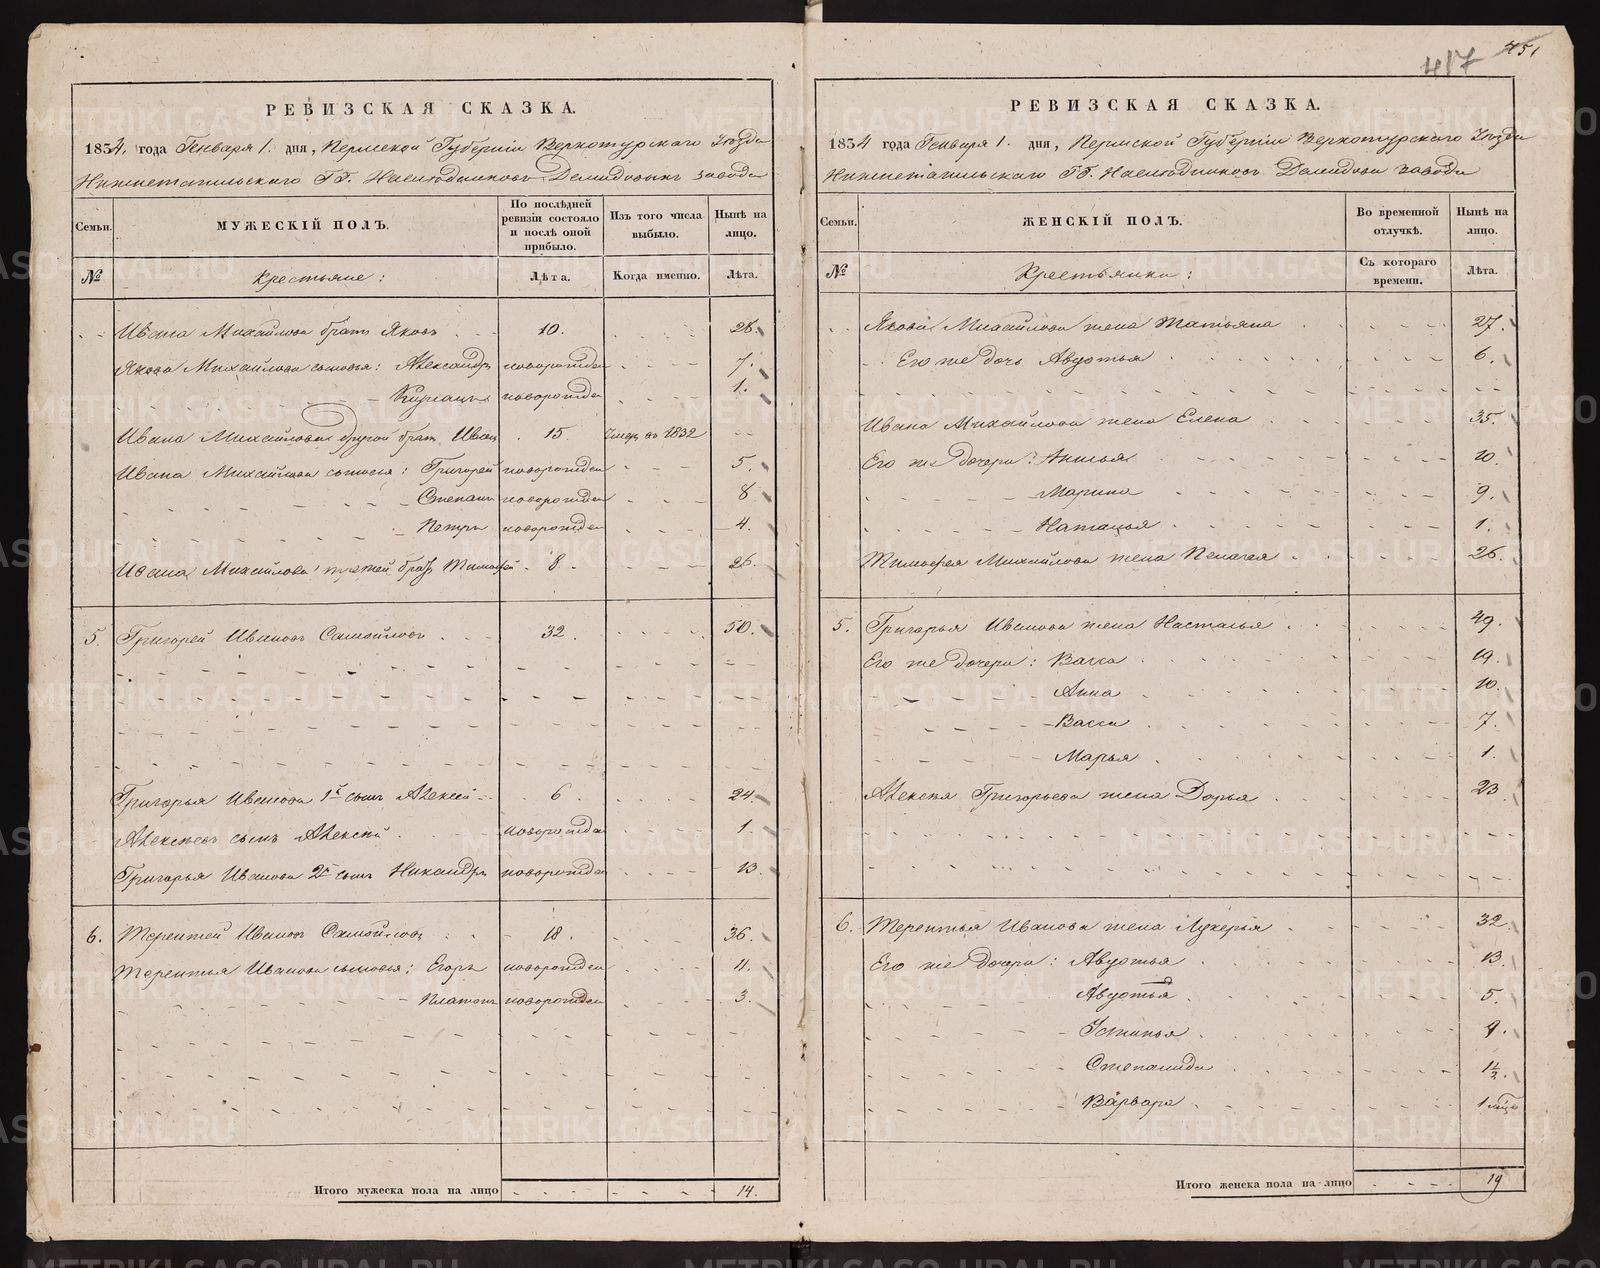 417 451
РЕВИЗСКАЯ СКАЗКА.
1834 года Генваря 1. дня, Пермской Губерніи Верхотурскаго Уѣзда
Нижнетагильскаго ГГ. Наслѣдниковъ Демидовыхъ завода
Семьи. МУЖЕСКІЙ ПОЛЪ. По послѣдней ревизіи состояло и послѣ оной прибыло. Изъ того числа выбыло. Нынѣ на лицо.
№ Крестьяне: Лѣта. Когда именно. Лѣта.
Ивана Михайлова братъ Яковъ 10. 26
Якова Михайлова сыновья: Александръ новорожден 7.
новорожден 1.
Ивана Михайлова другой братъ Иванъ 15. Умер въ 1832
Ивана Михайлова сыновья: Григорей новорожден 5.
Степанъ новорожден 8
Петръ новорожден 4.
Ивана Михайлова третей братъ Тимофей 8. 26.
5 Григорей Ивановъ Самойловъ 32. 50.
Григорья Иванова 1й сынъ Алексей 6 24.
Алексѣевъ сынъ Алексѣй новорожден 1
Григорья Иванова 2й сынъ Никандръ новорожден 13.
6. Терентей Ивановъ Самойловъ 18. 36.
Терентья Иванова сыновья: Егоръ новорожден 11.
Платонъ новорожден 3.
Итого мужеска пола на лицо 14.
РЕВИЗСКАЯ СКАЗКА.
1834 года Генваря 1. дня, Пермской Губерніи Верхотурскаго Уѣзда
Нижнетагильскаго ГГ. Наследниковъ Демидова завода
Семьи. ЖЕНСКІЙ ПОЛЪ. Во временной отлучкѣ. Нынѣ на лицо.
№ Крестьянки: Съ котораго времени. Лѣта.
Якова Михайлова жена Татьяна 27.
Его же дочь Авдотья 6.
Ивана Михайлова жена Елена 35.
Его же дочери: 10.
Марина 9.
Наталья 1.
Тимофея Михайлова жена Пелагея 26.
5. Григорья Иванова жена Настасья 49.
Его же дочери: Васса 19.
Анна 10.
Васса 7.
Марья 1.
Алексѣя Григорьева жена Дарья 23
6. Терентья Иванова жена Лукерья 32
Его же дочери: Авдотья 13.
Авдотья 5.
Устинья
Степанида 1½.
Варвара 1
Итого женска пола на лицо 19
METRIKI.GASO-URAL.RU